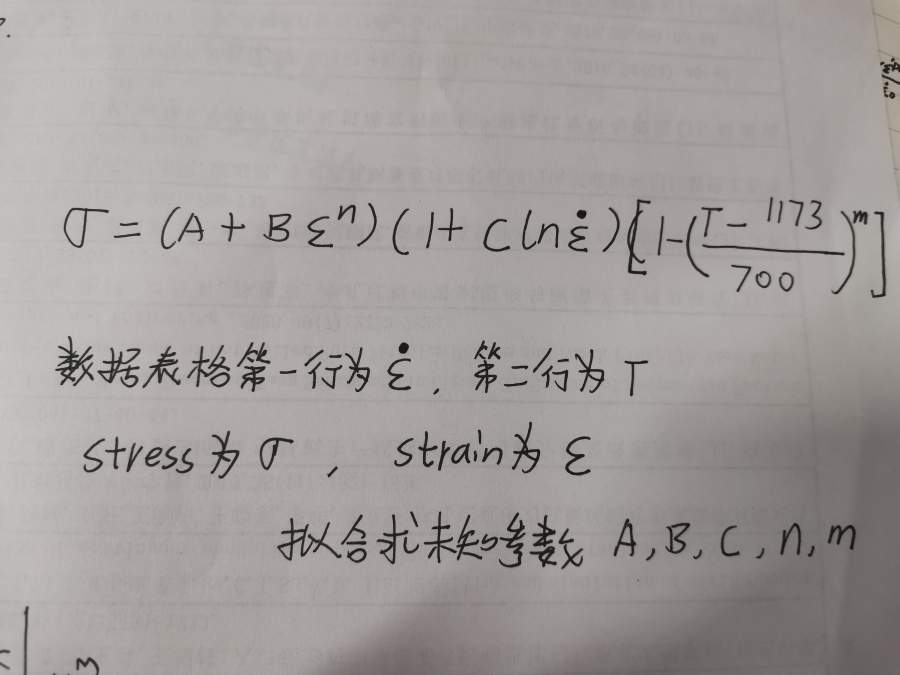 σ = (A + B ε^n) (1 + C ln ε̇) [1 - ((T - 1173)/700)^m]
数据表格第一行为 ε̇, 第二行为 T
stress为 σ , strain为 ε
拟合求未知参数 A, B, C, n, m